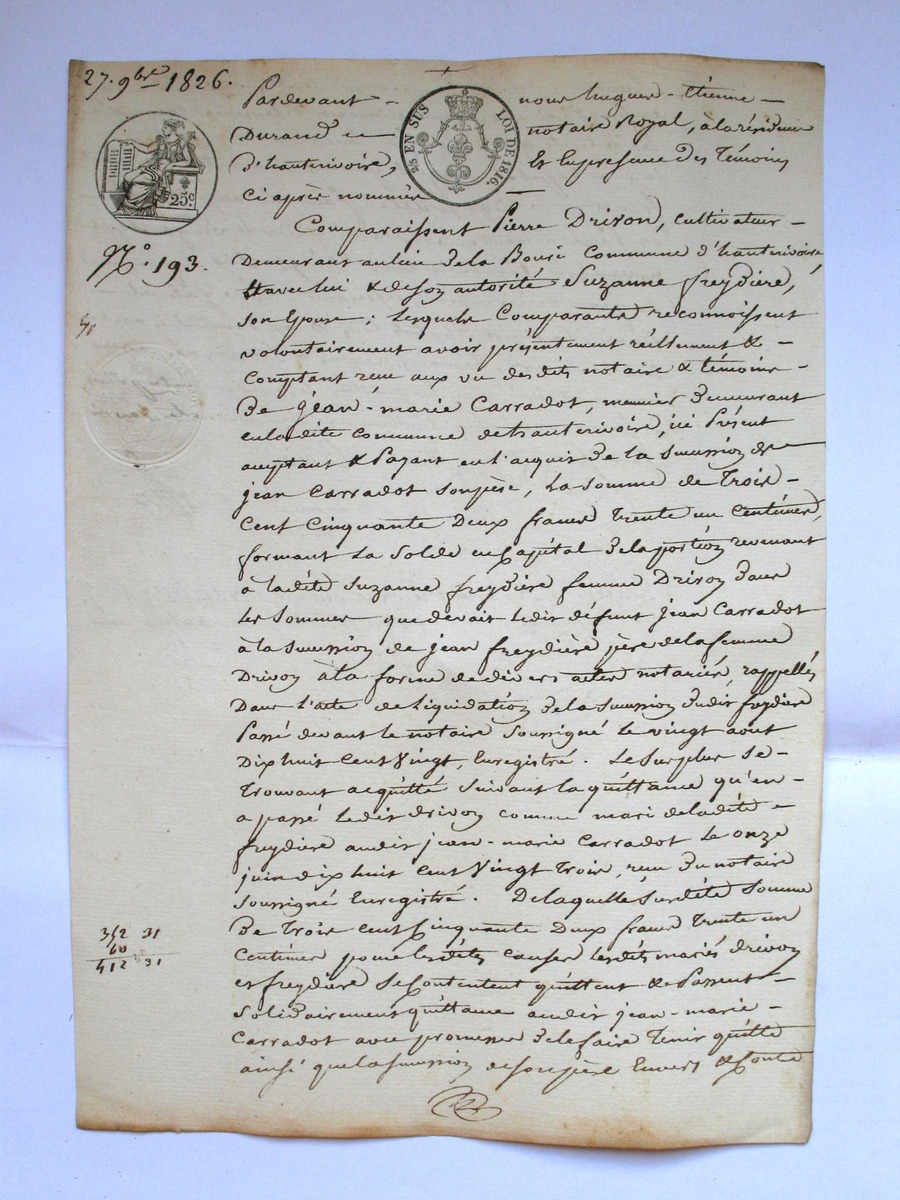 27. 9bre 1826.
Pardevant - nous hugues-étienne -
Durand notaire Royal, à la résidence
d'hauterivoire, & en presence des témoins
ci après nommés
EN SUS LOI DE 1816.
25c
N°. 193.
Comparaissent Pierre Drivon, cultivateur -
demeurant au lieu de la Bouré commune d'hauterivoire
& avec lui & de son autorité Suzanne freydière,
son épouse ; lesquels comparants reconnoissent
volontairement avoir présentement réellement & -
comptant reçu aux vu desdits notaire & témoins -
De jean-marie Carradot, meunier demeurant
en la dite commune de hauterivoire, ici Présent
acceptant & Payant en l'acquit de la succession de
jean Carradot son père, la somme de Trois -
cent cinquante Deux francs trente un centimes,
formant la solde en capital de la portion revenant
à ladite Suzanne freydière femme Drivon dans
les sommes que devait ledit défunt jean Carradot
à la succession de jean freydière père de la femme
Drivon à la forme de divers actes notariés, rappellés
dans l'acte de liquidation de la succession dudit freydière
Passé devant le notaire soussigné le vingt aout
Dix huit cent Vingt, enregistré. Le surplus se -
trouvant acquitté suivant la quittance qu'en -
a passé ledit drivon comme mari de ladite -
freydière audit jean-marie Carradot le onze
juin dix huit cent Vingt trois, reçu du notaire
soussigné enregistré. De laquelle susdite somme
De trois cent cinquante Deux francs trente un
centimes pour lesdites causes lesdits mariés drivon
et freydière se contentent quittent & Passent -
solidairement quittance audit jean-marie -
Carradot avec promesse de le faire tenir quitte
ainsi que la succession de son père envers & contre
352 31
60
412 31